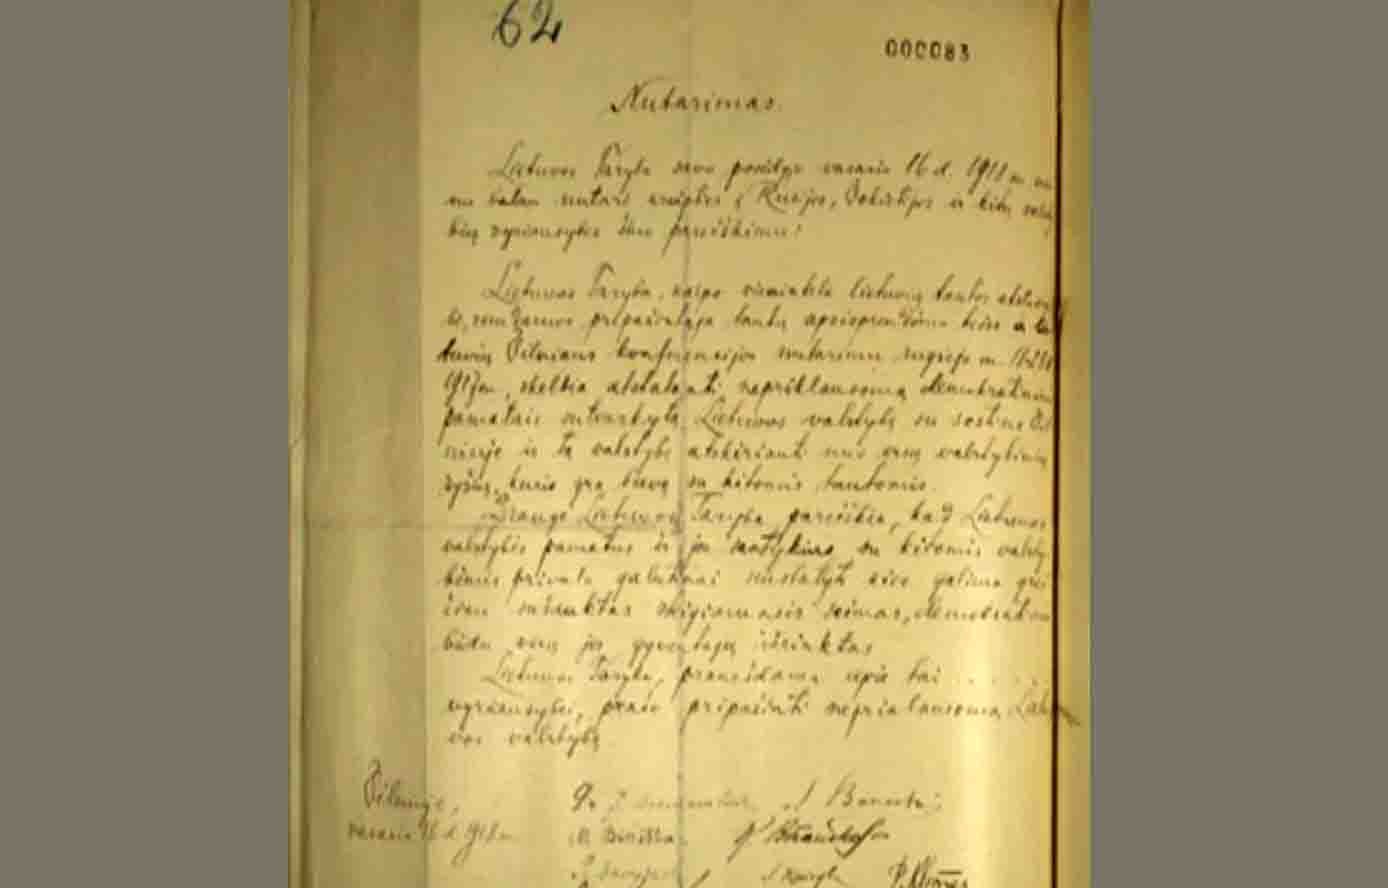 62
000083
Nutarimas.
Lietuvos Taryba savo posėdyje vasario 16 d. 1918 m.
balsu nutarė kreiptis į Rusijos, Vokietijos ir kitų
vyriausybes šiuo pareiškimu:
Lietuvos Taryba, kaipo vienintelė lietuvių tautos
remdamos pripažintąja tautų apsisprendimo teise ir
Vilniaus konferencijos nutarimu rugsėjo m. 18-23 d
1917 m., skelbia atstatanti nepriklausomą demokratiniais
pamatais sutvarkytą Lietuvos valstybę su sostine
ir tą valstybę atskirianti nuo visų valstybinių
ryšių, kurie yra buvę su kitomis tautomis.
Drauge Lietuvos Taryba pareiškia, kad Lietuvos
valstybės pamatus ir jos santykius su kitomis
privalo galutinai nustatyti kiek galima
sušauktas steigiamasis seimas, demokratiniu
būdu visų jos gyventojų išrinktas
Lietuvos Taryba, pranešdama apie tai . . . . . .
vyriausybei, prašo pripažinti nepriklausomą
valstybę
Vilniuje,
vasario 16 d. 1918 m.
Dr. J. Basanavičius
S. Banaitis
M. Biržiška
K. Bizauskas